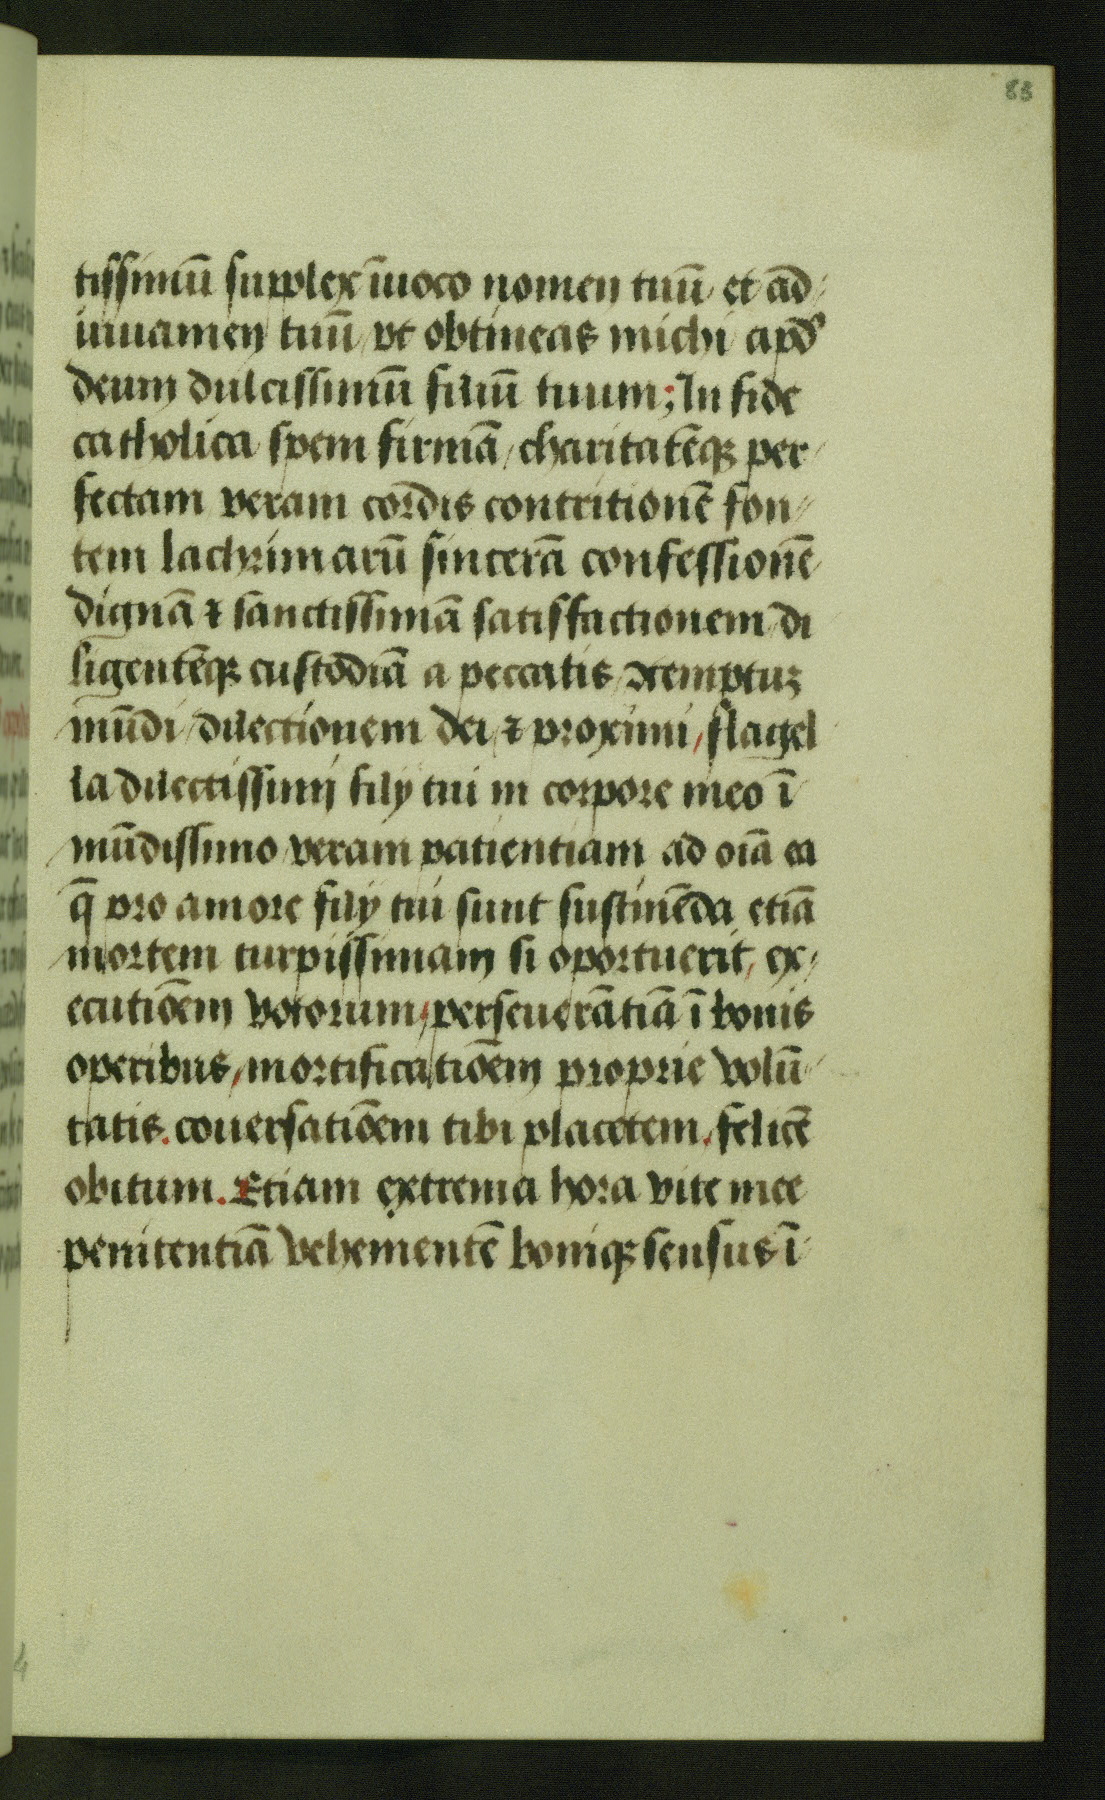 83
tissimū supplex īuoco nomen tuū et ad
iuuamen tuū vt obtineas michi apd
deum dulcissimū filiū tuum; In fide
catholica spem firmā, charitatēq; per
fectam veram cordis contritionē fon
tem lachrimarū sincerā confessionē
dignā & sanctissimā satisfactionem di
ligentēq; custodiā a peccatis, ꝯtemptuȝ
mūdi dilectionem dei & proximi, flagel
la dilectissimi filij tui in corpore meo ī
mūdissimo veram patientiam ad oīa ea
q̄ pro amore filij tui sunt sustinēda etiā
mortem turpissimam si oportuerit, ex
ecutiōem votorum, perseuerātiā ī bonis
operibus, mortificatiōem proprie volū
tatis. couersatiōem tibi placetem. felicē
obitum. Etiam extrema hora vite mee
penitentiā vehementē boniq; sensus ī